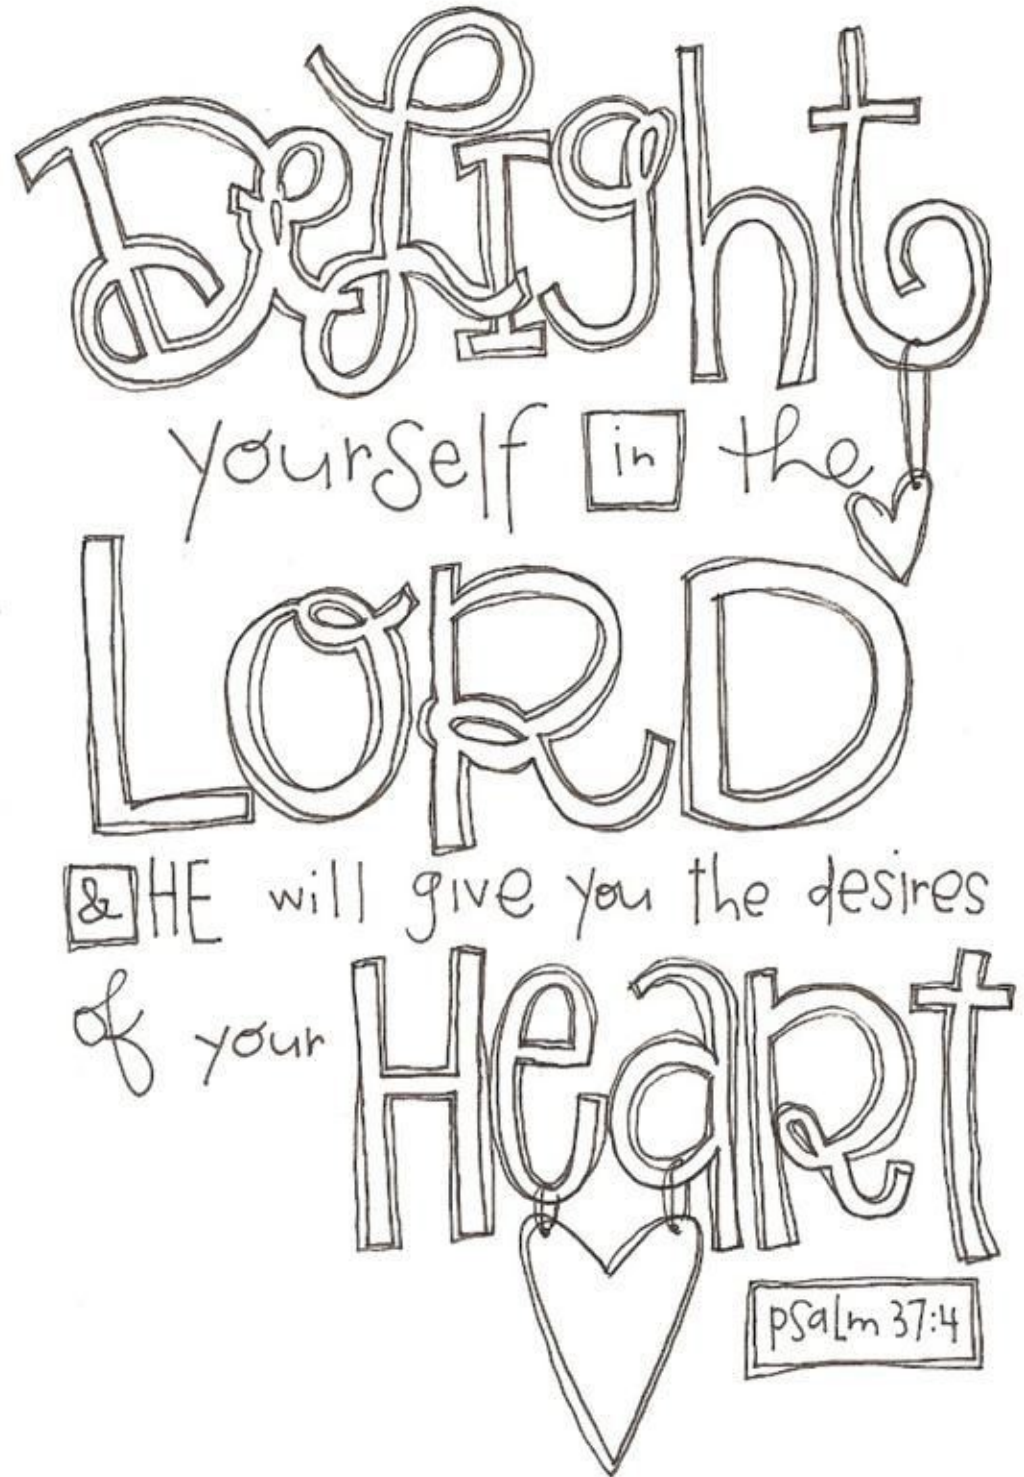 DeLIght
yourself in the
LORD
& HE will give you the desires
of your HeaRt
psalm 37:4